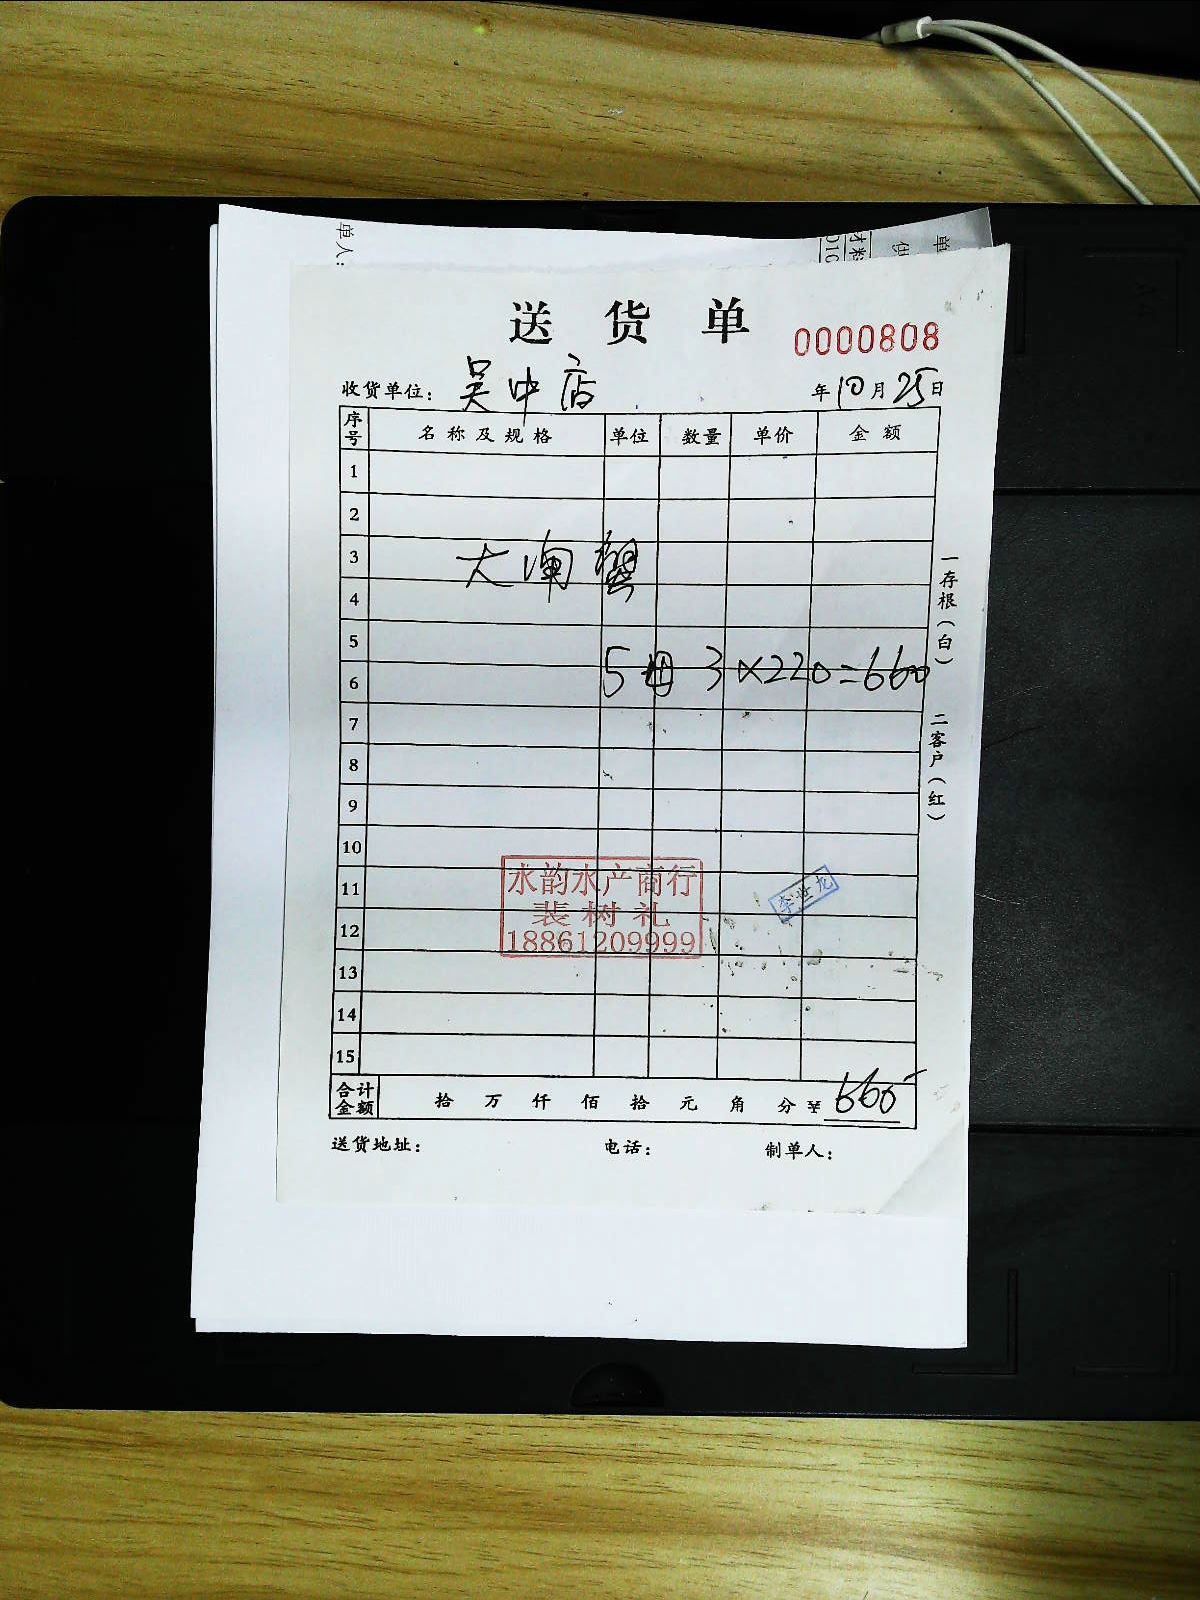 单人:
单
供
材料
010
送 货 单
0000808
收货单位: 吴中店
年10月25日
序号 名称及规格 单位 数量 单价 金额
1
2
3 大闸蟹
4
5
6 5母 3×220=660
7
8
9
10
11
12
13
14
15
永韵水产商行
裴树礼
18861209999
李世龙
合计金额 拾 万 仟 佰 拾 元 角 分 ¥ 660
送货地址: 电话: 制单人:
一存根(白) 二客户(红)